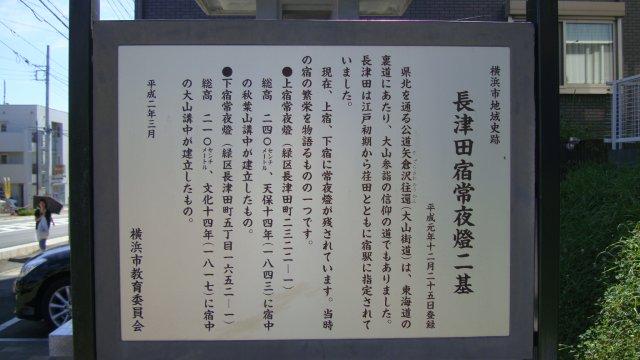 横浜市地域史跡
長津田宿常夜燈二基
平成元年十二月二十五日登録
県北を通る公道矢倉沢往還(大山街道)は、東海道の
裏道にあたり、大山参詣の信仰の道でもありました。
長津田は江戸初期から荏田とともに宿駅に指定されて
いました。
現在、上宿、下宿に常夜燈が残されています。当時
の宿の繁栄を物語るものの一つです。
●上宿常夜燈(緑区長津田町二三二二ー一)
総高 二四〇センチメートル、天保十四年(一八四三)に宿中
の秋葉山講中が建立したもの。
●下宿常夜燈(緑区長津田町五丁目一六五二ー一)
総高 二一〇センチメートル、文化十四年(一八一七)に宿中
の大山講中が建立したもの。
平成二年三月
横浜市教育委員会